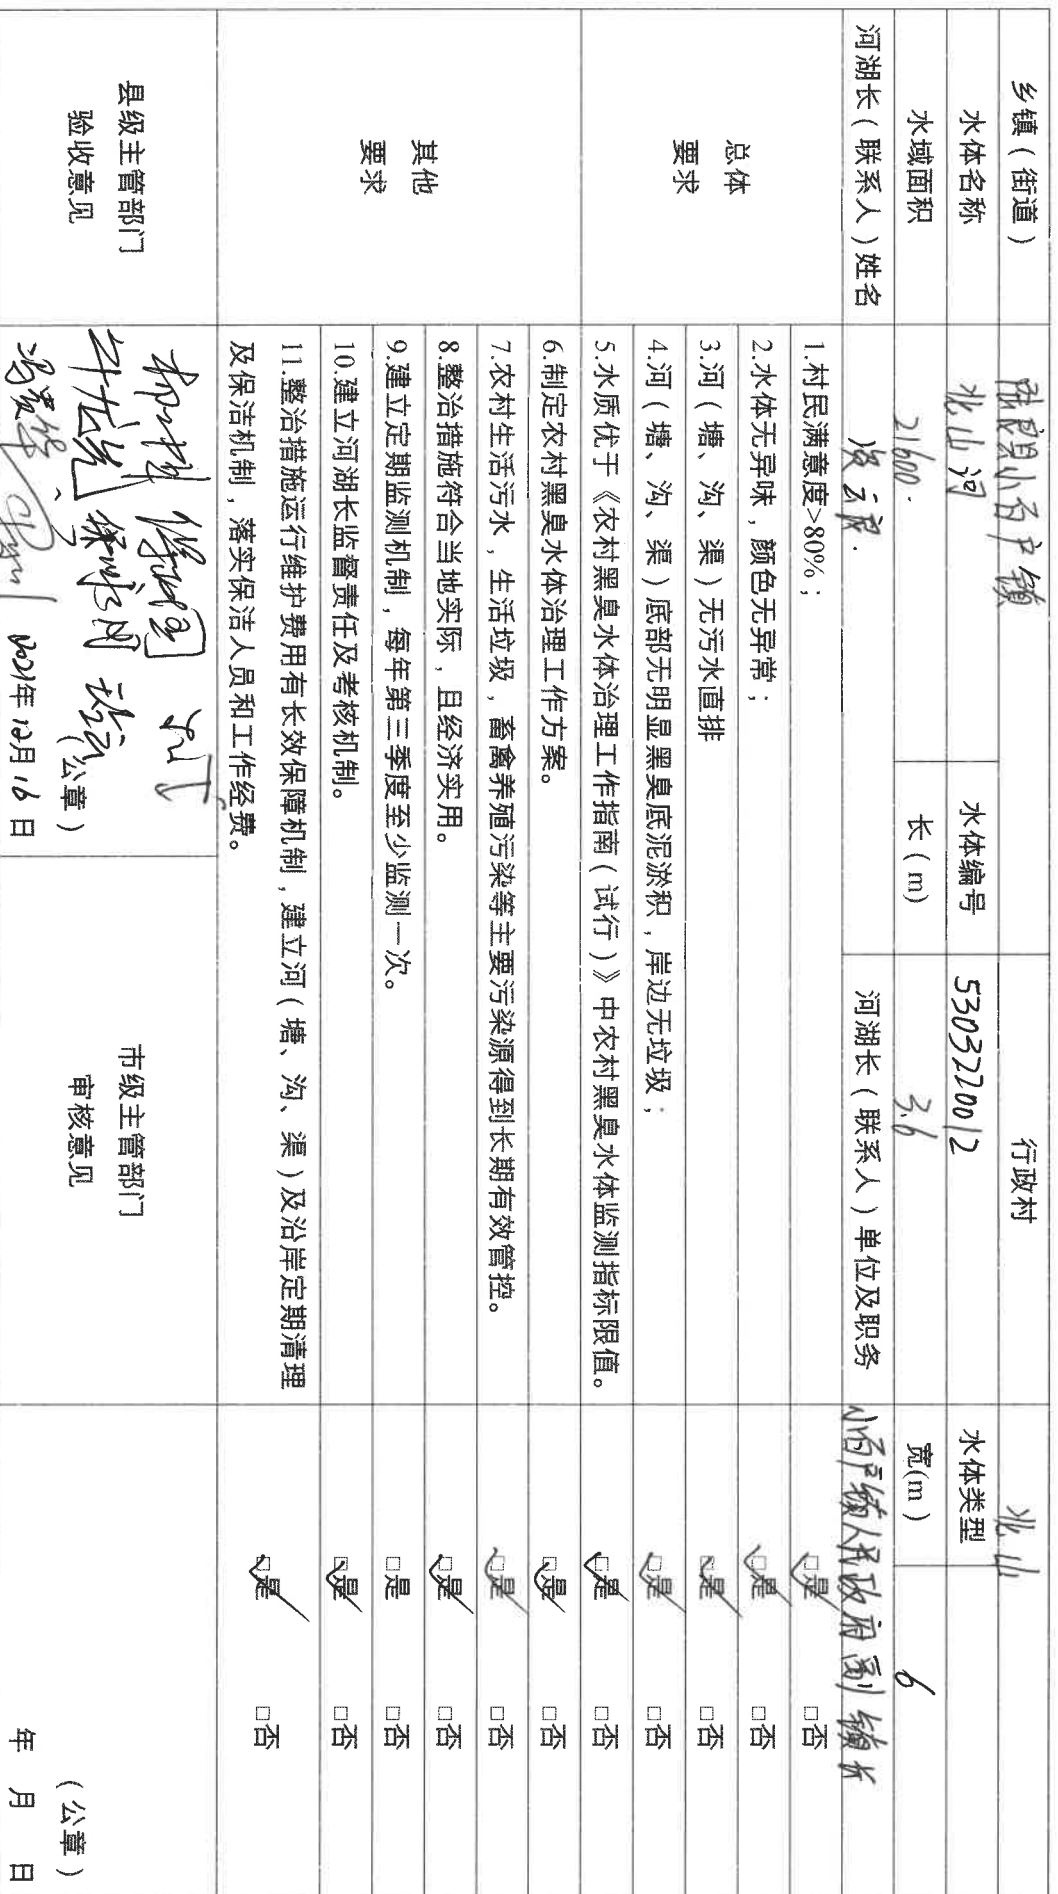 乡镇（街道） 陆良县小百户镇 行政村 北山
水体名称 北山河 水体编号 5303220012 水体类型
水域面积 21600. 长（m） 3.6 宽(m) 6
河湖长（联系人）姓名 河湖长（联系人）单位及职务 小百户镇人民政府副镇长
总体
要求
1.村民满意度>80%； □是 □否
2.水体无异味，颜色无异常； □是 □否
3.河（塘、沟、渠）无污水直排 □是 □否
4.河（塘、沟、渠）底部无明显黑臭底泥淤积，岸边无垃圾； □是 □否
5.水质优于《农村黑臭水体治理工作指南（试行）》中农村黑臭水体监测指标限值。 □是 □否
其他
要求
6.制定农村黑臭水体治理工作方案。 □是 □否
7.农村生活污水，生活垃圾，畜禽养殖污染等主要污染源得到长期有效管控。 □是 □否
8.整治措施符合当地实际，且经济实用。 □是 □否
9.建立定期监测机制，每年第三季度至少监测一次。 □是 □否
10.建立河湖长监督责任及考核机制。 □是 □否
11.整治措施运行维护费用有长效保障机制，建立河（塘、沟、渠）及沿岸定期清理
及保洁机制，落实保洁人员和工作经费。 □是 □否
县级主管部门
验收意见
（公章）
2021年12月16日
市级主管部门
审核意见
（公章）
年 月 日